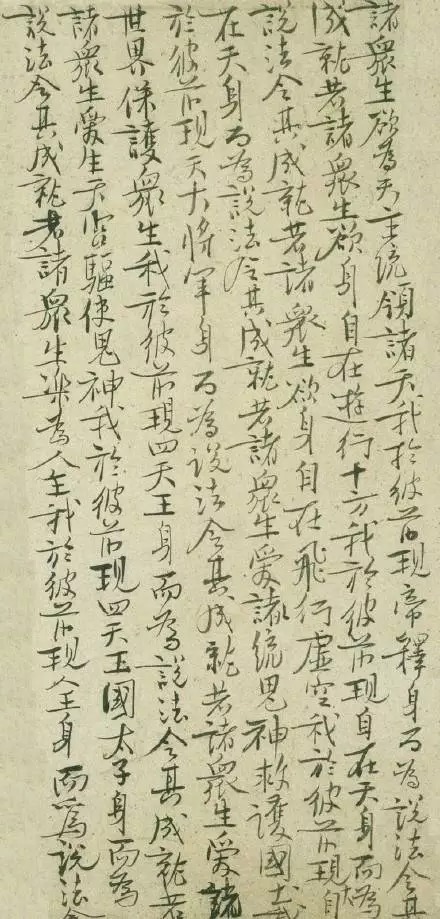 諸眾生欲為天主統領諸天我於彼前現帝釋身而為說法令其
成就若諸眾生欲身自在遊行十方我於彼前現自在天身而為
說法令其成就若諸眾生欲身自在飛行虛空我於彼前現大自
在天身而為說法令其成就若諸眾生愛諸統鬼神救護國土我
於彼前現天大將軍身而為說法令其成就若諸眾生愛
世界保護眾生我於彼前現四天王身而為說法令其成就若
諸眾生愛生天宮驅使鬼神我於彼前現四天王國太子身而為
說法令其成就若諸眾生樂為人王我於彼前現人王身而為說法令